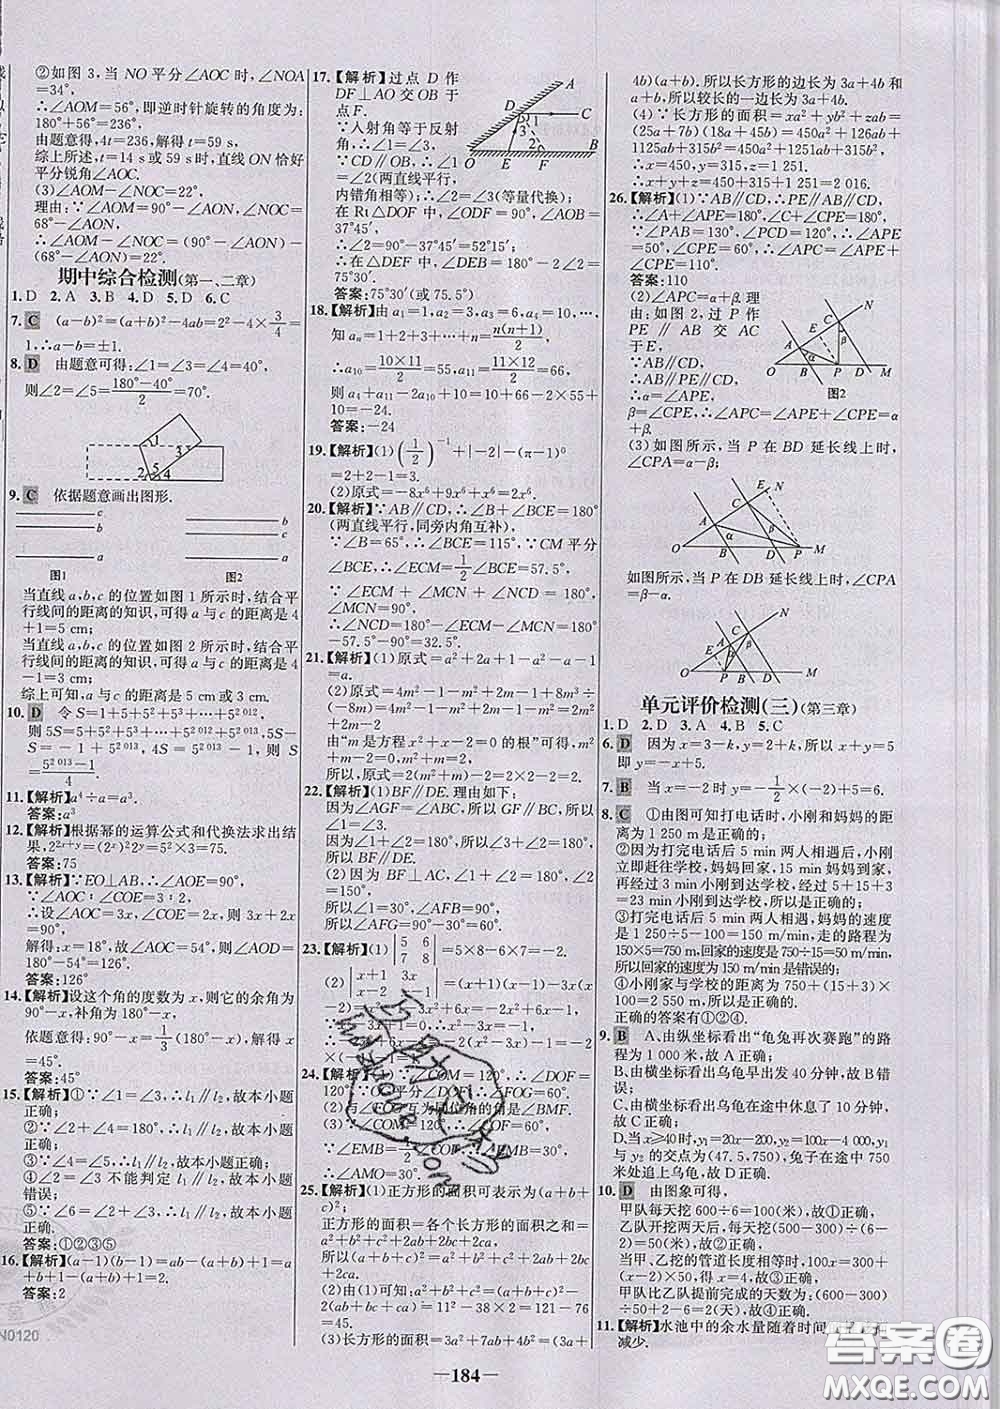 ②如图 3,当 NO 平分∠AOC 时,∠NOA
=34°,
∴∠AOM=56°,即逆时针旋转的角度为:
180°+56°=236°,
由题意得,4t=236,解得 t=59,
综上所述,t=14 s 或 59 s 时,直线 ON 恰好
平分锐角∠AOC.
(3)∠AOM-∠NOC=22°,
理由:∵∠AOM=90°-∠AON,∠NOC=
68°-∠AON,
∴∠AOM-∠NOC=(90°-∠AON)-
(68°-∠AON)=22°.
期中综合检测(第一、二章)
1.D 2.A 3.B 4.D 5.D 6.C
7. C (a-b)²=(a+b)²-4ab=2²-4×3/4=
1,∴a-b=±1.
8. D 由题意可得:∠1=∠3=∠4=40°,
则∠2=∠5=(180°-40°)/2=70°.
9. C 依据题意画出图形.
图1 图2
当直线 a,b,c 的位置如图 1 所示时,结合平
行线间的距离的知识,可得 a 与 c 的距离是 4
+1=5 cm;
当直线 a,b,c 的位置如图 2 所示时,结合平
行线间的距离的知识,可得 a 与 c 的距离是
4-1=3 cm;
综上可知,a 与 c 的距离是 5 cm 或 3 cm.
10. D 令 S=1+5+5²+5³+…+5^2 012,
则 5S=5+5²+5³+…+5^2 012+5^2 013,5S-
S=-1+5^2 013,4S=5^2 013-1,则 S=
(5^2 013-1)/4.
11.【解析】a⁴÷a=a³.
答案:a³
12.【解析】根据幂的运算公式和代换法求出结
果,2^(2x+y)=(2^x)²2^y=5²×3=75.
答案:75
13.【解析】∵EO⊥AB,∴∠AOE=90°,
∵∠AOC∶∠COE=3∶2,
∴设∠AOC=3x,∠COE=2x,则 3x+2x
=90°,
解得:x=18°,故∠AOC=54°,则∠AOD=
180°-54°=126°.
答案:126°
14.【解析】设这个角的度数为 x,则它的余角为
90°-x,补角为 180°-x,
依题意得:90°-x=1/3(180°-x),解得 x
=45°.
答案:45°
15.【解析】①∵∠1=∠2,∴l₁∥l₂,故本小题
正确;
②∵∠2+∠4=180°,∴l₁∥l₂,故本小题正
确;
③∵∠4=∠5,∴l₁∥l₂,故本小题正确;
④∠2=∠3 不能判定 l₁∥l₂,故本小题
错误;
⑤∵∠6=∠2+∠3,∴l₁∥l₂,故本小题
正确.
答案:①②③⑤
16.【解析】(a-1)(b-1)=ab-(a+b)+1=a
+b+1-(a+b)+1=2.
答案:2
N0120
17.【解析】过点 D 作
DF⊥AO 交 OB 于
点F.
∵入射角等于反射
角,∴∠1=∠3,
∵CD∥OB,∴∠1
=∠2(两直线平行,
内错角相等);
∴∠2=∠3(等量代换);
在 Rt△DOF 中,∠ODF=90°,∠AOB=
37°45′,
∴∠2=90°-37°45′=52°15′;
∴在△DEF 中,∠DEB=180°-2∠2=
75°30′.
答案:75°30′(或 75.5°)
18.【解析】由 a₁=1,a₂=3,a₃=6,a₄=10,…,
知 aₙ=1+2+3+…+n=n(n+1)/2,
∴a₁₀=(10×11)/2=55,a₁₁=(11×12)/2=66,
则 a₄+a₁₁-2a₁₀+10=10+66-2×55+
10=-24.
答案:-24
19.【解析】(1)(1/2)⁻¹+|-2|-(π-1)⁰
=2+2-1=3.
(2)原式=-8x⁶+9x⁶+x⁶=2x⁶.
20.【解析】∵AB∥CD,∴∠B+∠BCE=180°
(两直线平行,同旁内角互补),
∵∠B=65°,∴∠BCE=115°,∵CM 平分
∠BCE,∴∠ECM=1/2∠BCE=57.5°,
∵∠ECM+∠MCN+∠NCD=180°,
∠MCN=90°,
∴∠NCD=180°-∠ECM-∠MCN=180°
-57.5°-90°=32.5°.
21.【解析】(1)原式=a²+2a+1-a²-a-1
=a.
(2)原式=4m²-1-(m²-2m+1)+8m³÷
(-8m)=4m²-1-m²+2m-1-m²=2m²
+2m-2
=2(m²+m-1).
由“m 是方程 x²+x-2=0 的根”可得,m²+
m-2=0,即 m²+m=2,
所以,原式=2(m²+m-1)=2×(2-1)=2.
22.【解析】(1)BF∥DE.理由如下:
因为∠AGF=∠ABC,所以 GF∥BC,所以
∠1=∠3,
因为∠1+∠2=180°,所以∠3+∠2=180°,
所以 BF∥DE.
(2)因为 BF⊥AC,∠1+∠2=180°,∠2=
150°,
所以∠1=30°,∠AFB=90°,
所以∠AFG=90°-30°=60°.
23.【解析】(1)|5 6; 7 8|=5×8-6×7=-2.
(2)|x+1 3x; x-2 x-1|=(x+1)(x-1)-3x(x
-2)=x²-1-3x²+6x=-2x²+6x-1,
24.【解析】
25.【解析】(1)正方形的面积可表示为(a+b+
c)²;
正方形的面积=各个矩形的面积之和=
a²+b²+c²+2ab+2bc+2ca,
所以(a+b+c)²=a²+b²+c²+2ab+2bc+2ca.
(2)由(1)可知:a²+b²+c²=(a+b+c)²-
2(ab+bc+ca)=11²-38×2=121-76=
45.
(3)长方形的面积=3a²+7ab+4b²=(3a+
4b)(a+b).所以长方形的边长为 3a+4b 和
a+b,所以较长的一边长为 3a+4b.
(4)∵长方形的面积=xa²+yb²+zab=
(25a+7b)(18a+45b)=450a²+126ab+
1125ab+315b²=450a²+1251ab+315b²,
∴x=450,y=315,z=1 251.
∴x+y+z=450+315+1 251=2 016.
26.【解析】(1)∵AB∥CD,∴PE∥CD,
∴∠A+∠APE=180°,∠C+∠CPE=180°,
∵∠PAB=130°,∠PCD=120°,∴∠APE=
50°,∠CPE=60°,∴∠APC=∠APE+
∠CPE=110°.
答案:110
(2)∠APC=α+β.理
由:如图 2,过 P 作
PE∥AB 交 AC
于 E,
∵AB∥CD,
∴AB∥PE∥CD,
∴∠α=∠APE,∠β=
∠CPE,∴∠APC=∠APE+∠CPE=α+
β.
图2
(3)如图所示,当 P 在 BD 延长线上时,
∠CPA=α-β;
如图所示,当 P 在 DB 延长线上时,∠CPA
=β-α.
单元评价检测(三)(第三章)
1.D 2.D 3.A 4.B 5.C
6. D 因为 x=3-k,y=2+k,所以 x+y=5
即 y=-x+5.
7. B 当 x=-2 时 y=-1/2×(-2)+5=6.
8. C ①由图可知打电话时,小刚和妈妈的距
离为 1 250 m 是正确的;
②因为打完电话后 5 min 两人相遇后,小刚
立即赶往学校,妈妈回家,妈妈到家后,再经
过 3 min 小刚到达学校,经过 5+15+3
=23 min 小刚到达学校,所以是正确的;
③打完电话后 5 min 两人相遇,妈妈的速度
是 1 250÷5-100=150 m/min,走的路程为
150×5=750 m,回家的速度是 750÷15=50(m/min),
所以回家的速度为 150 m/min 是错误的;
④小刚家与学校的距离为 750+(15+3)
×100=2 550 m,所以是正确的.
正确的答案有①②④.
9. B A.由纵坐标看出“龟兔再次赛跑”的路
程为 1 000 米,故 A 正确;
B.由横坐标看出乌龟早出发 40 分钟,故 B
错误;
C.由横坐标看出乌龟在途中休息了 10 分钟,
故 C 正确;
D.当 x≥40时,y₁=20x-200,y₂=100x-4 000,y₁
与 y₂ 的交点为(47.5,750),兔子在途中 750
米处追上乌龟,故 D 正确.
10. D 由图象可得,
甲队每天挖 600÷6=100(米),故①正确,
乙队开挖两天后,每天挖(500-300)÷(6-
2)=50(米),故②正确,
当甲、乙挖的管道长度相等时,100x=300
+(x-2)×50,得 x=4,故③正确,
甲队比乙队提前完成的天数为:(600-300)
÷50+2-6=2(天),故④正确.
11.【解析】水池中的余水量随着时间
减少.
—184—
答案圈
MXQE.COM